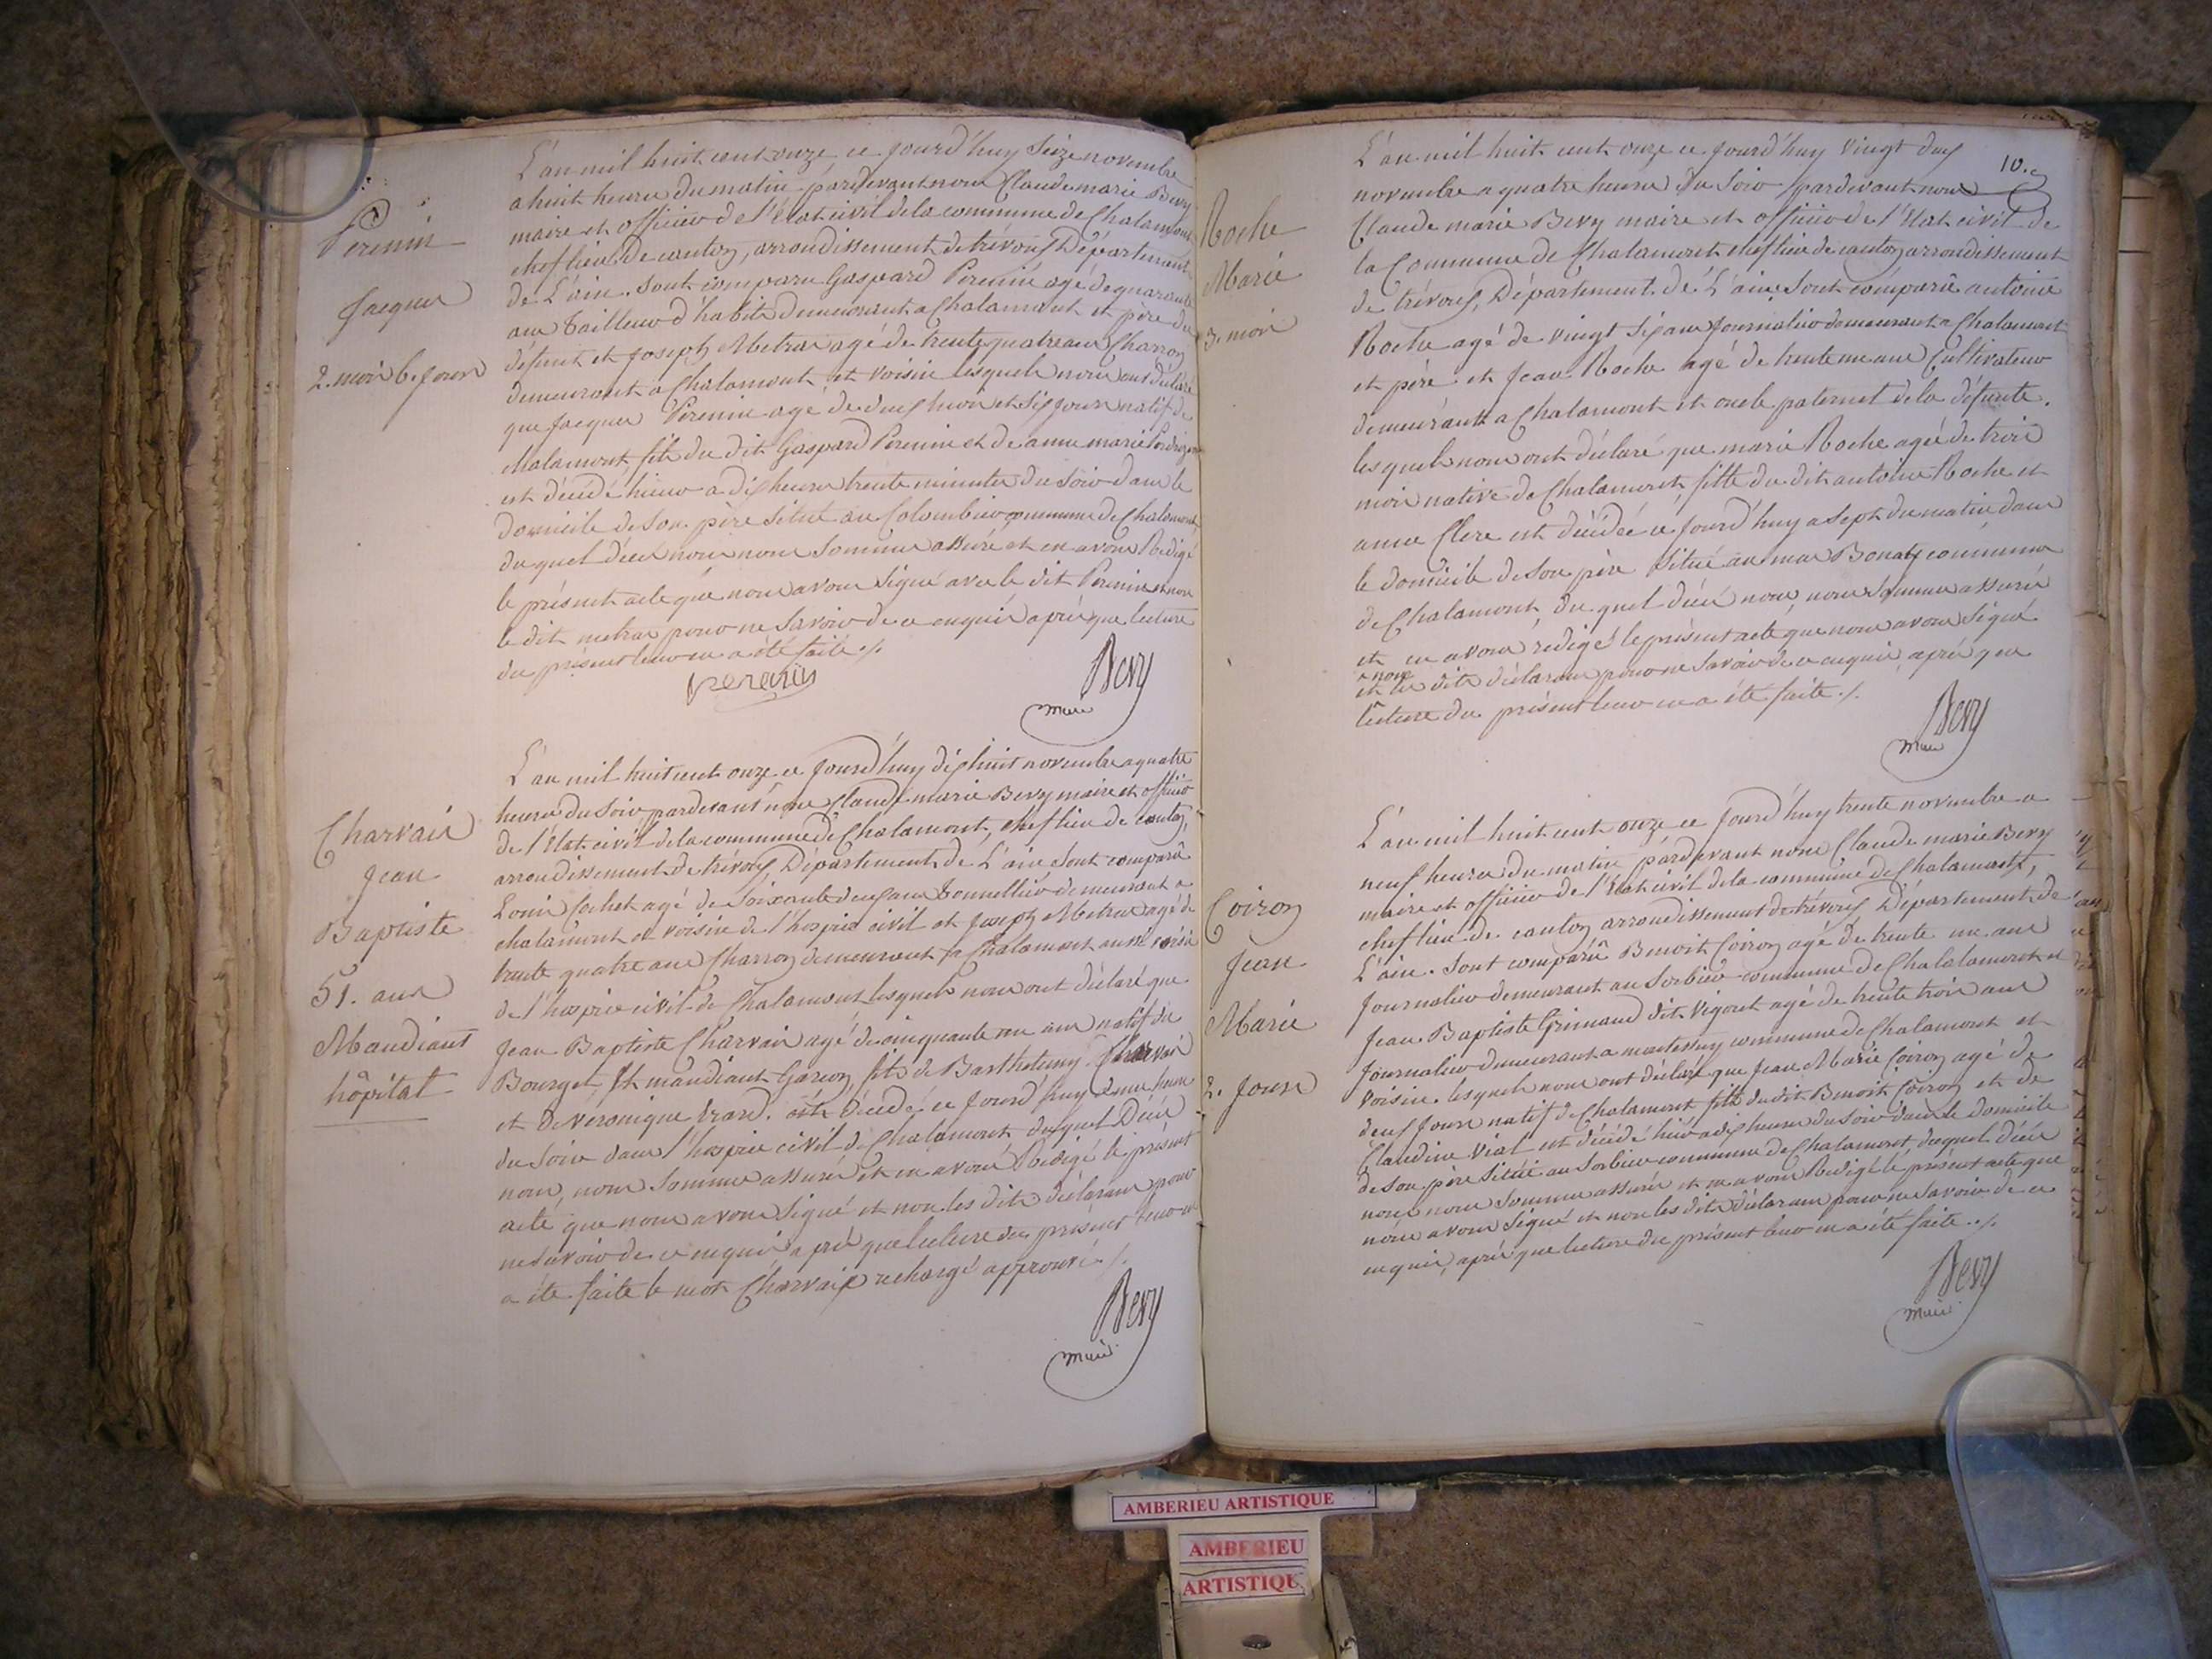 Perenin
Jacques
2. mois 6. jours
L'an mil huit cent onze ce jourd'huy Seize novembre
a huit heures du matin pardevant nous Claude marie Bevy
maire et officier de l'état civil de la commune de Chalamont
chef lieu de canton, arrondissement de trévoux Département
de L'ain. Sont comparu Gaspard Perenin agé de quarante
ans tailleur d'habits demeurant a Chalamont et père du
défunt et Joseph Metras agé de trente quatre ans Charron
demeurant a Chalamont et voisin lesquels nous ont déclaré
que Jacques Perenin agé de deux mois et six jours natif de
Chalamont, fils du dit Gaspard Perenin et de anne marie
est décédé hier a dix heures trente minutes du soir dans le
domicile de son père situé au Colombier commune de Chalamont
du quel décès nous nous sommes assuré et en avons Redigé
le présent acte que nous avons signé avec le dit Perenin et non
le dit metras pour ne savoir de ce enquis après que lecture
du présent leur en a été faite ./.
perenin
Bevy
maire
Charvais
Jean
Baptiste
51. ans
Mandiant
hôpital
L'an mil huit cent onze ce jourd'huy dix huit novembre a quatre
heures du soir, pardevant nous Claude marie Bevy maire et officier
de l'état civil de la commune de Chalamont, chef lieu de canton,
arrondissement de trévoux, Département de L'ain Sont comparû
Louis Cochet agé de soixante deux ans tonnellier demeurant a
chalamont et voisin de l'hospice civil et Joseph Metras agé de
trente quatre ans Charron demeurant a Chalamont aussi voisin
de l'hospice civil de Chalamont lesquels nous ont déclaré que
Jean Baptiste Charvais agé de cinquante un ans natif du
Bourget, mandiant Garcon, fils de Barthelemy Charvais
et de Veronique est décédé ce jourd'huy a une heure
du soir dans l'hospice civil de Chalamont duquel Décès
nous, nous sommes assuré et en avons Redigé le présent
acte que nous avons signé et non les dits déclarans pour
ne savoir de ce enquis après que lecture du présent leur en
a été faite le mot Charvais rechargé approuvé ./.
Bevy
maire
10.e
Roche
Marie
3. mois
L'an mil huit cent onze ce jourd'huy vingt deux
novembre a quatre heures du soir pardevant nous
Claude marie Bevy maire et officier de l'état civil de
la Commune de Chalamont chef lieu de canton arrondissement
de trévoux, Département de L'ain. Sont comparû antoine
Roche agé de vingt six ans journalier demeurant a Chalamont
et père et Jean Roche agé de trente un ans Cultivateur
demeurant a Chalamont et oncle paternel de la défunte.
lesquels nous ont déclaré que marie Roche agée de trois
mois native de Chalamont, fille du dit antoine Roche et
anne Clerc est décédée ce jourd'huy a sept du matin dans
le domicile de son père situé au mas Bonat commune
de Chalamont, du quel décès nous, nous sommes assurés
et en avons redigé le présent acte que nous avons signé
et non les dits déclarans pour ne savoir de ce enquis, après que
lecture du présent leur en a été faite ./.
Bevy
maire
Coiron
Jean
Marie
2. Jours
L'an mil huit cent onze ce jourd'huy trente novembre a
neuf heures du matin pardevant nous Claude marie Bevy
maire et officier de l'état civil de la commune de Chalamont,
chef lieu de canton arrondissement de trévoux Département de
L'ain. Sont comparû Benoit Coiron agé de trente un ans
journalier demeurant au Sorbier commune de Chalalamont et
Jean Baptiste Grimaud dit Vigoret agé de trente trois ans
journalier demeurant a montessuy commune de Chalamont et
voisin. lesquels nous ont déclaré que Jean Marie Coiron agé de
deux Jours natif de Chalamont fils du dit Benoit Coiron et de
Claudine Vial est décédé hier a dix heures du soir dans le domicile
de son père situé au Sorbier commune de Chalamont duquel décès
nous nous sommes assurés et en avons Redigé le présent acte que
nous avons signé et non les dits déclarans pour ne savoir de ce
enquis, après que lecture du présent leur en a été faite ./.
Bevy
maire
AMBERIEU ARTISTIQUE
AMBERIEU
ARTISTIQUE